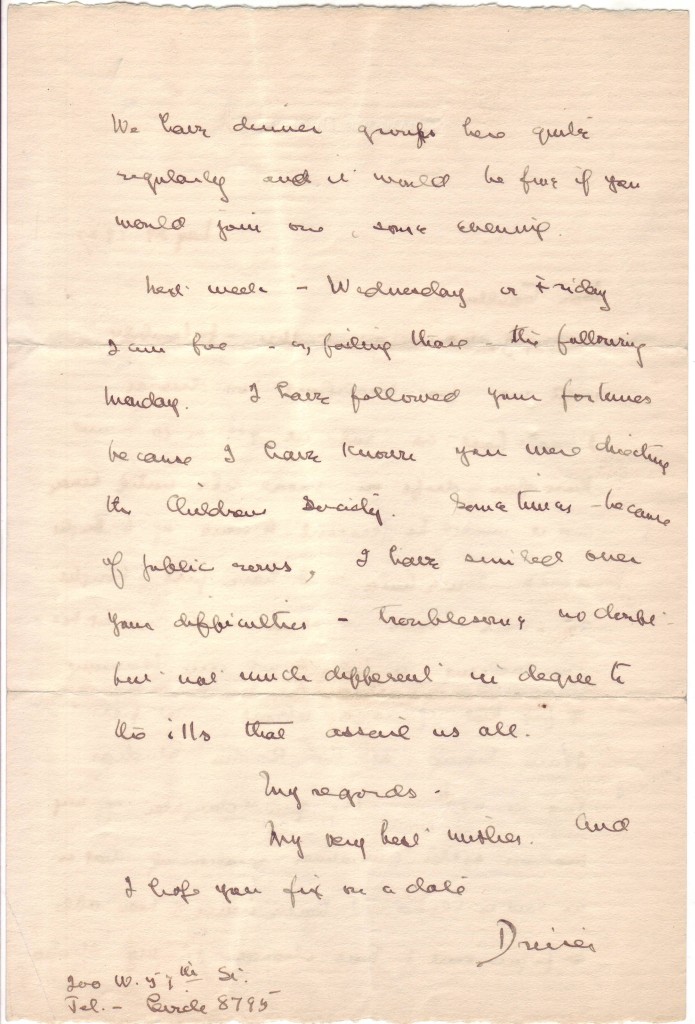 We have dinner groups here quite
regularly and it would be fine if you
would join one, some evening.
Next week - Wednesday or Friday
I am free - or, failing these - the following
Monday. I have followed your fortunes
because I have known you were directing
the Childrens Society. Sometimes - because
of public rows, I have smiled over
your difficulties - troublesome no doubt -
but not much different in degree to
the ills that assail us all.
My regards -
My very best wishes. And
I hope you fix on a date
200 W. 57th St.
Tel. - Circle 8795